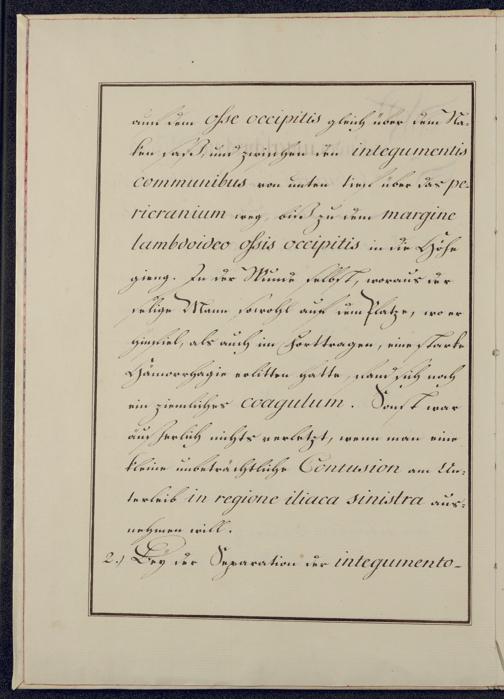 auf dem Osse occipitis gleich über dem Na-
ken saß, und zwischen den integumentis
communibus von unten hin über das pe-
ricranium weg, biß zu dem margine
lambdoideo ossis occipitis in die Höhe
gieng. In der Wunde selbst, woraus der
selige Mann sowohl auf dem Platze, wo er
hinfiel, als auch im Forttragen, eine starke
Hämorrhagie erlitten hatte, fand sich noch
ein ziemliches coagulum. Sonst war
äußerlich nichts verletzt, wenn man eine
kleine unbeträchtliche Contusion am Un-
terleib in regione iliaca sinistra aus-
nehmen will.
2.) Bey der Separation der integumento-